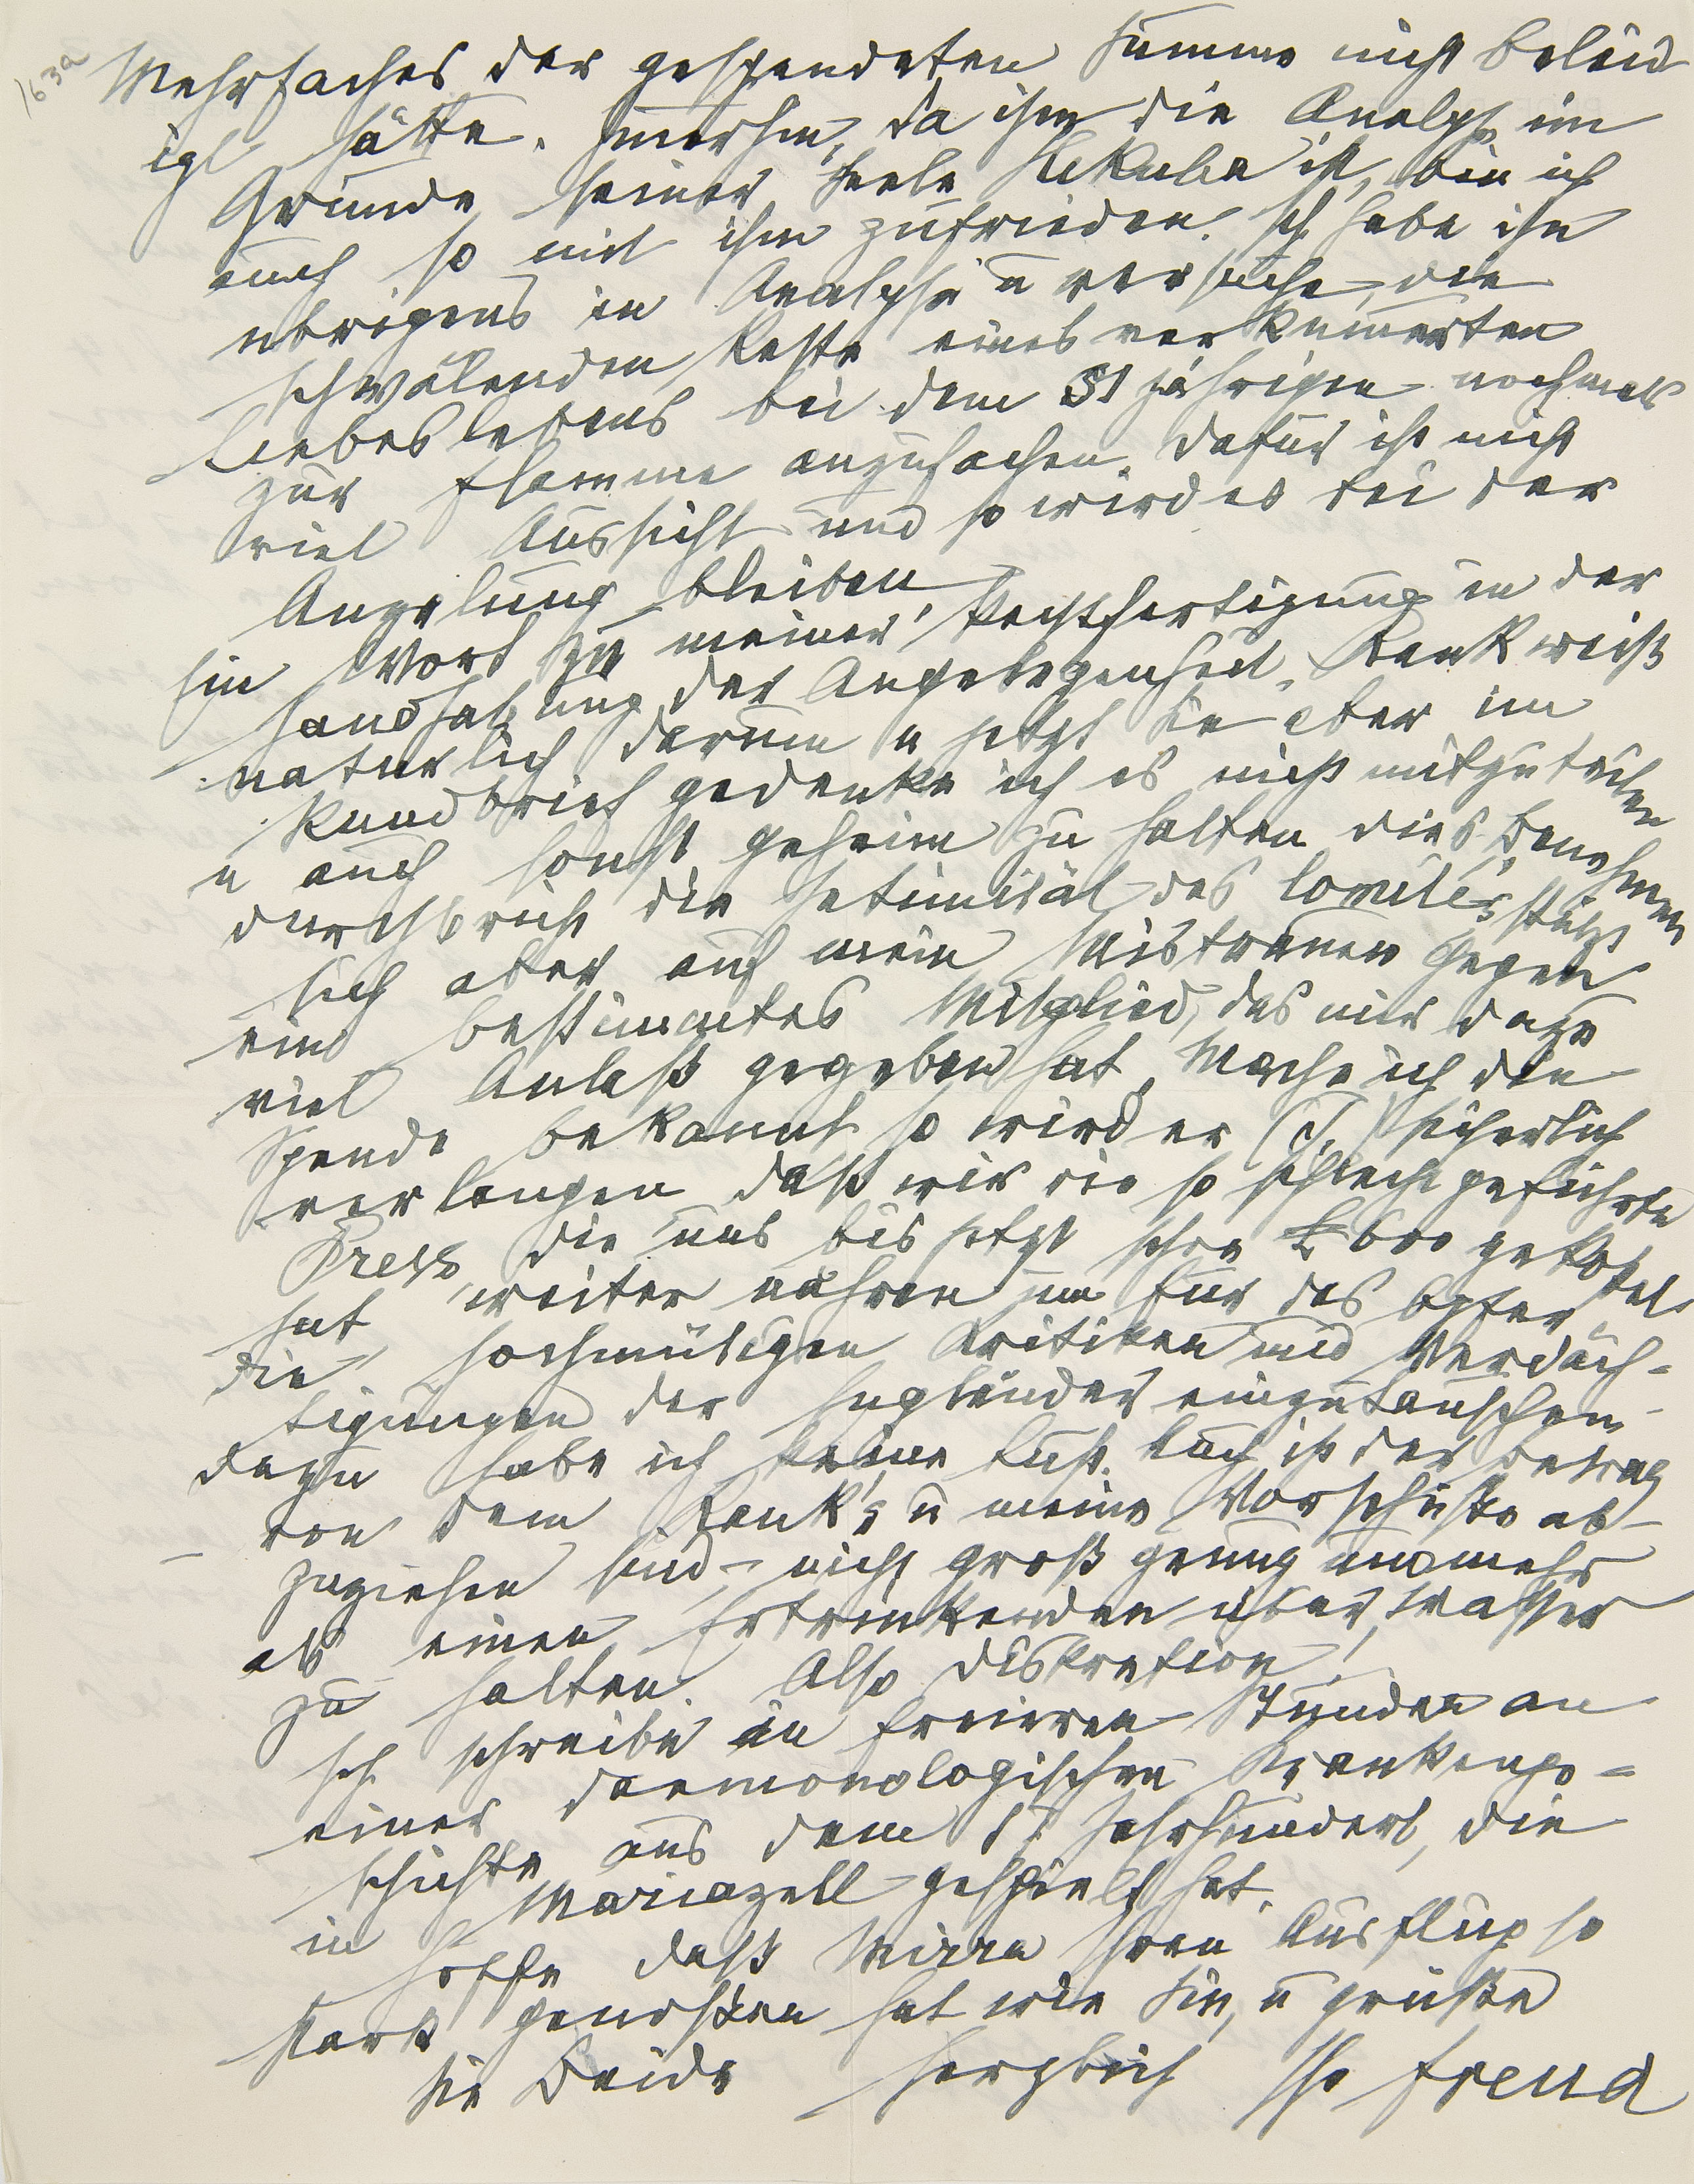 163a
Mehrfaches der gespendeten Summe nicht beleid
igt hätte. Immerhin, da ihm die Analyse im
Grunde seiner Seele Hekuba ist, bin ich
auch so mit ihm zufrieden. Ich habe ihn
übrigens in Analyse u versuche, die
schwälenden Reste eines verkümmerten
Liebeslebens bei dem 51 jährigen nochmals
zur Flamme anzufachen. Dafür ist nicht
viel Aussicht und so wird es bei der
bleiben
Ein Wort zu meiner Rechtfertigung in der
Handhabung der Angelegenheit. Rank weiß
natürlich darum u jetzt Sie aber im
Rundbrief gedenke ich es nicht mitzuteilen
u auch sonst geheim zu halten dies Benehmen
durchbricht die Intimität des Comité's, stützt
sich aber auf mein Mistrauen gegen
ein bestimmtes Mitglied, das mir dazu
viel Anlaß gegeben hat. Mache ich die
Spende bekannt so wird er (J.) sicherlich
verlangen daß wir die so schlecht geführte
Press, die uns bis jetzt schon £ 600 gekostet
hat weiter nähren um für das Opfer
die hochmütigen Kritiken und Verdäch-
tigungen der Engländer einzutauschen,
dazu habe ich keine Lust. Auch ist der Betrag
– von dem Rank's u meine Vorschüße ab-
zuziehen sind – nicht groß genug um mehr
als einen Ertrinkenden über Wasser
zu halten. Also Diskretion!
Ich schreibe in freieren Stunden an
einer daemonologischen Krankenge=
schichte aus dem 17 Jahrhundert, die
in Mariazell gespielt hat.
Hoffe daß Mirra Ihren Ausflug so
stark genossen hat wie Sie, u grüße
Sie Beide herzlich Ihr Freud